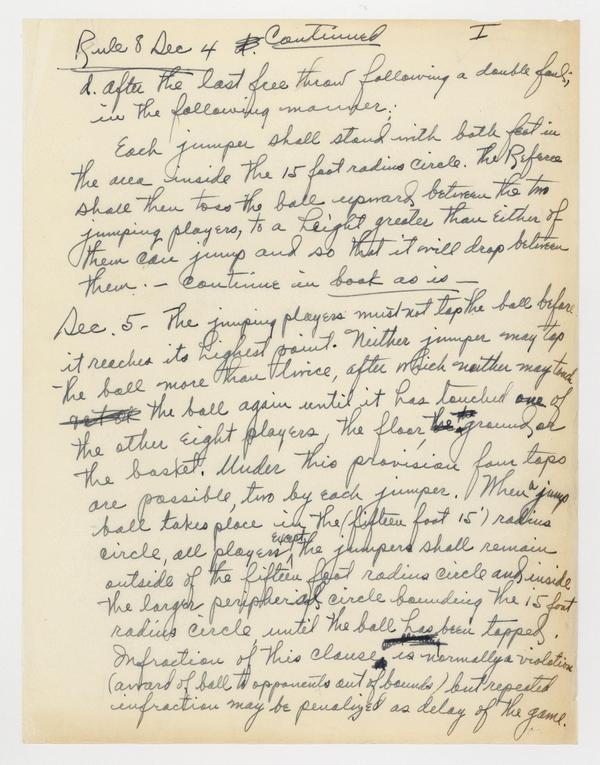 Rule 8 Sec 4 d. Continued I
d. after the last free throw following a double foul;
in the following manner:
Each jumper shall stand with both feet in
the area inside the 15 foot radius circle. The Referee
shall then toss the ball upward, between the two
jumping players, to a height greater than Either of
them can jump and so that it will drop between
them. — continue in book as is —
Sec. 5 - The jumping players must not tap the ball before
it reaches its highest point. Neither jumper may tap
the ball more than twice, after which neither may touch
the ball again until it has touched one of
the other Eight players, the floor, the ground, or
the basket. Under this provision four taps
are possible, two by each jumper. When a jump
ball takes place in the (fifteen foot 15') radius
circle, all players except the jumpers shall remain
outside of the fifteen foot radius circle and inside
the larger peripheral circle bounding the 15 foot
radius circle until the ball has been tapped.
Infraction of this clause is normally a violation
(award of ball to opponents out of bounds) but repeated
infraction may be penalized as delay of the game.